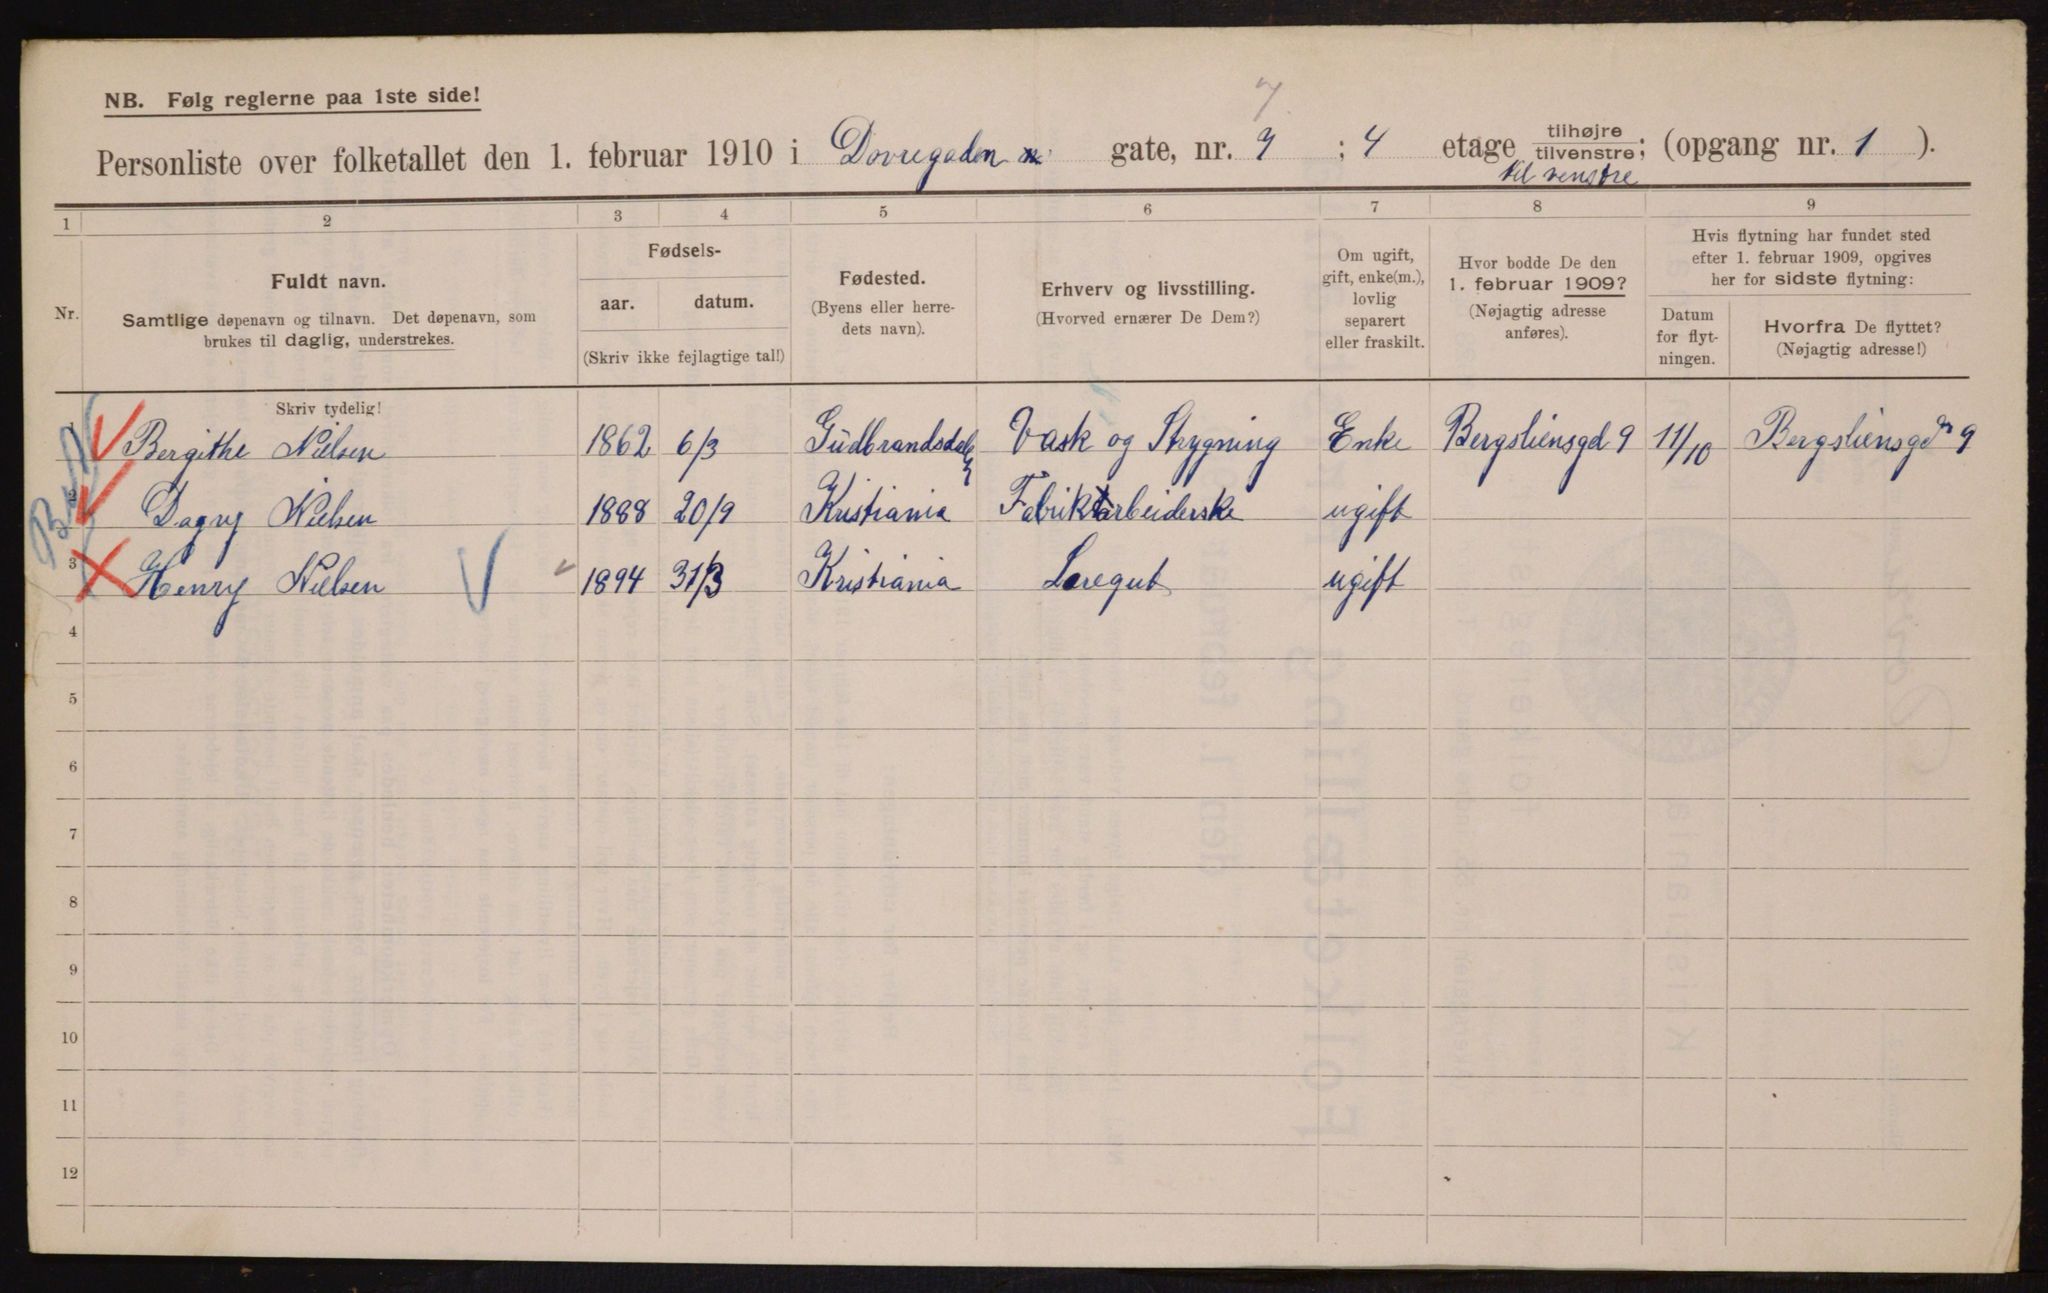 NB. Følg reglerne paa 1ste side!
7
Personliste over folketallet den 1. februar 1910 i Dovregaden gate, nr. 7 ; 4 etage tilhøjre tilvenstre; (opgang nr. 1 ).
til venstre
1 2 3 4 5 6 7 8 9
Nr.
Fuldt navn.
Samtlige døpenavn og tilnavn. Det døpenavn, som
brukes til daglig, understrekes.
Fødsels-
aar. datum.
(Skriv ikke fejlagtige tal!)
Fødested.
(Byens eller herre-
dets navn).
Erhverv og livsstilling.
(Hvorved ernærer De Dem?)
Om ugift,
gift, enke(m.),
lovlig
separert
eller fraskilt.
Hvor bodde De den
1. februar 1909?
(Nøjagtig adresse
anføres).
Hvis flytning har fundet sted
efter 1. februar 1909, opgives
her for sidste flytning:
Datum
for flyt-
ningen.
Hvorfra De flyttet?
(Nøjagtig adresse!)
Skriv tydelig!
1 Bergithe Nielsen 1862 6/3 Gudbrandsdalen Vask og Strygning Enke Bergsliensgd 9 11/10 Bergsliensgdn 9
2 Dagny Nielsen 1888 20/9 Kristiania Fabrikarbeiderske ugift
3 Henry Nielsen 1894 31/3 Kristiania Læregut ugift
4
5
6
7
8
9
10
11
12